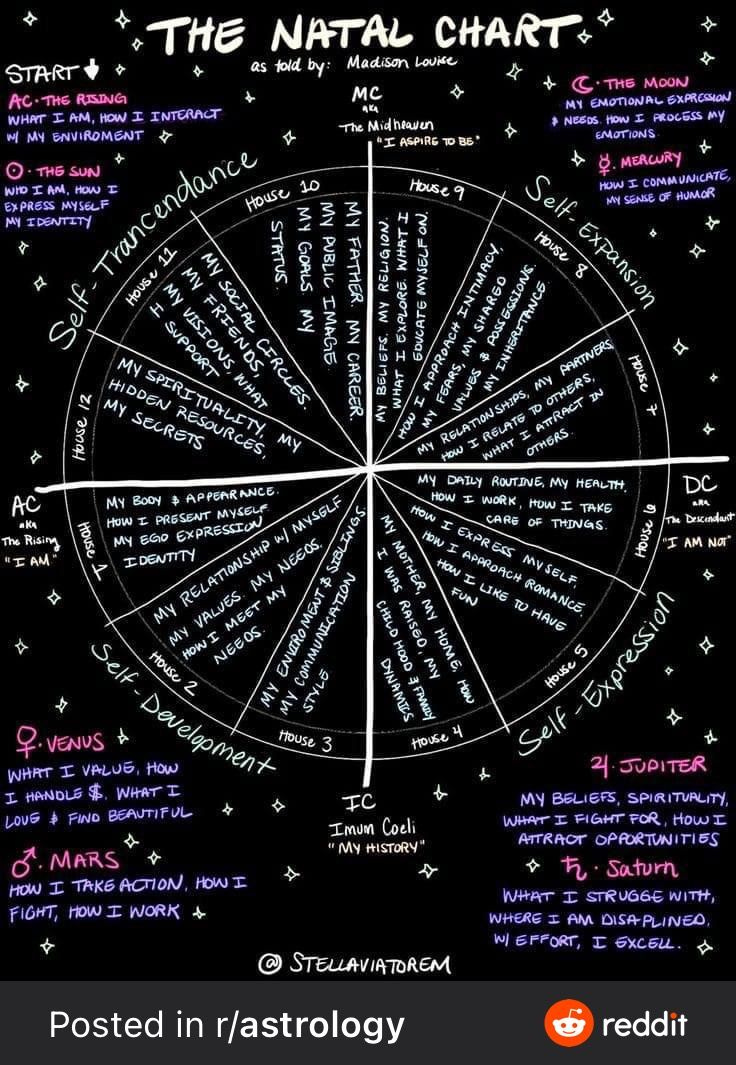 THE NATAL CHART
as told by: Madison Louise
START
AC · THE RISING
WHAT I AM, HOW I INTERACT
W/ MY ENVIROMENT
☉ · THE SUN
WHO I AM, HOW I
EXPRESS MYSELF
MY IDENTITY
MC
aka
The Midheaven
"I ASPIRE TO BE"
☾ · THE MOON
MY EMOTIONAL EXPRESSION
& NEEDS. HOW I PROCESS MY
EMOTIONS.
☿ · MERCURY
HOW I COMMUNICATE,
MY SENSE OF HUMOR
Self-Trancendance
Self-Expansion
House 10
MY FATHER. MY CAREER.
MY PUBLIC IMAGE.
MY GOALS. MY
STATUS.
House 9
MY BELIEFS. MY RELIGION.
WHAT I EXPLORE. WHAT I
EDUCATE MYSELF ON.
House 8
HOW I APPROACH INTIMACY.
MY FEARS, MY SHARED
VALUES & POSSESSIONS.
MY INHERITANCE
House 7
MY RELATIONSHIPS, MY PARTNERS,
HOW I RELATE TO OTHERS,
WHAT I ATTRACT IN
OTHERS.
House 11
MY SOCIAL CIRCLES.
MY FRIENDS,
MY VISIONS, WHAT
I SUPPORT
House 12
MY SPIRITUALITY, MY
HIDDEN RESOURCES,
MY SECRETS
AC
aka
The Rising
"I AM"
House 1
MY BODY & APPEARANCE.
HOW I PRESENT MYSELF
MY EGO EXPRESSION
IDENTITY
House 2
MY RELATIONSHIP W/ MYSELF
MY VALUES. MY NEEDS.
HOW I MEET MY
NEEDS.
House 3
MY ENVIROMENT & SIBLINGS.
MY COMMUNICATION
STYLE
House 4
MY MOTHER, MY HOME, HOW
I WAS RAISED, MY
CHILD HOOD & FAMILY
DYNAMICS
House 5
HOW I EXPRESS MYSELF,
HOW I APPROACH ROMANCE.
HOW I LIKE TO HAVE
FUN
House 6
MY DAILY ROUTINE, MY HEALTH,
HOW I WORK, HOW I TAKE
CARE OF THINGS.
DC
aka
The Descendant
"I AM NOT"
Self-Development
Self-Expression
IC
Imum Coeli
"MY HISTORY"
♀ · VENUS
WHAT I VALUE, HOW
I HANDLE $, WHAT I
LOVE & FIND BEAUTIFUL
♂ · MARS
HOW I TAKE ACTION, HOW I
FIGHT, HOW I WORK
♃ · JUPITER
MY BELIEFS, SPIRITUALITY,
WHAT I FIGHT FOR, HOW I
ATTRACT OPPORTUNITIES
♄ · Saturn
WHAT I STRUGGE WITH,
WHERE I AM DISAPLINED.
W/ EFFORT, I EXCELL.
@ STELLAVIATOREM
Posted in r/astrology
reddit